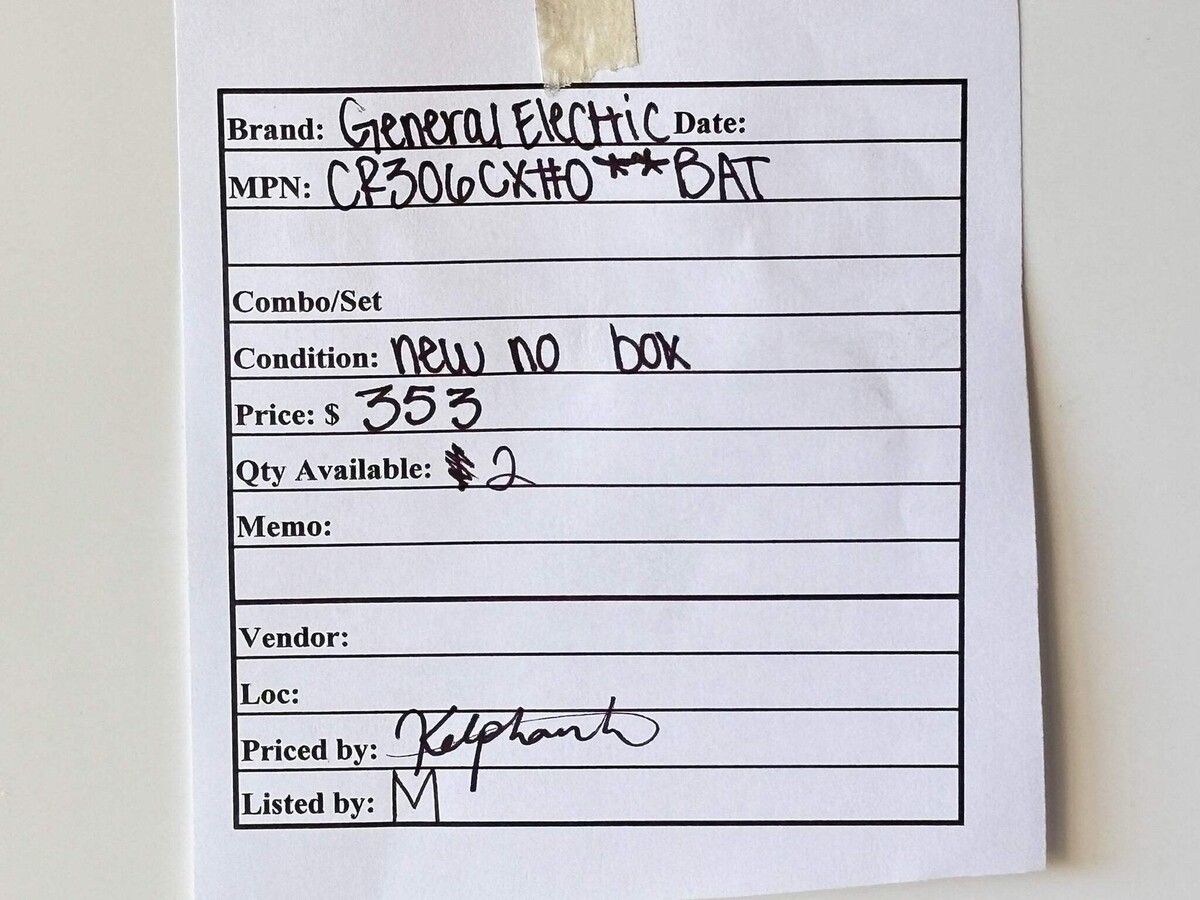 Brand: General Electric Date:
MPN: CR306CX#0**BAT
Combo/Set
Condition: new no box
Price: $ 353
Qty Available: 2
Memo:
Vendor:
Loc:
Priced by:
Listed by: M